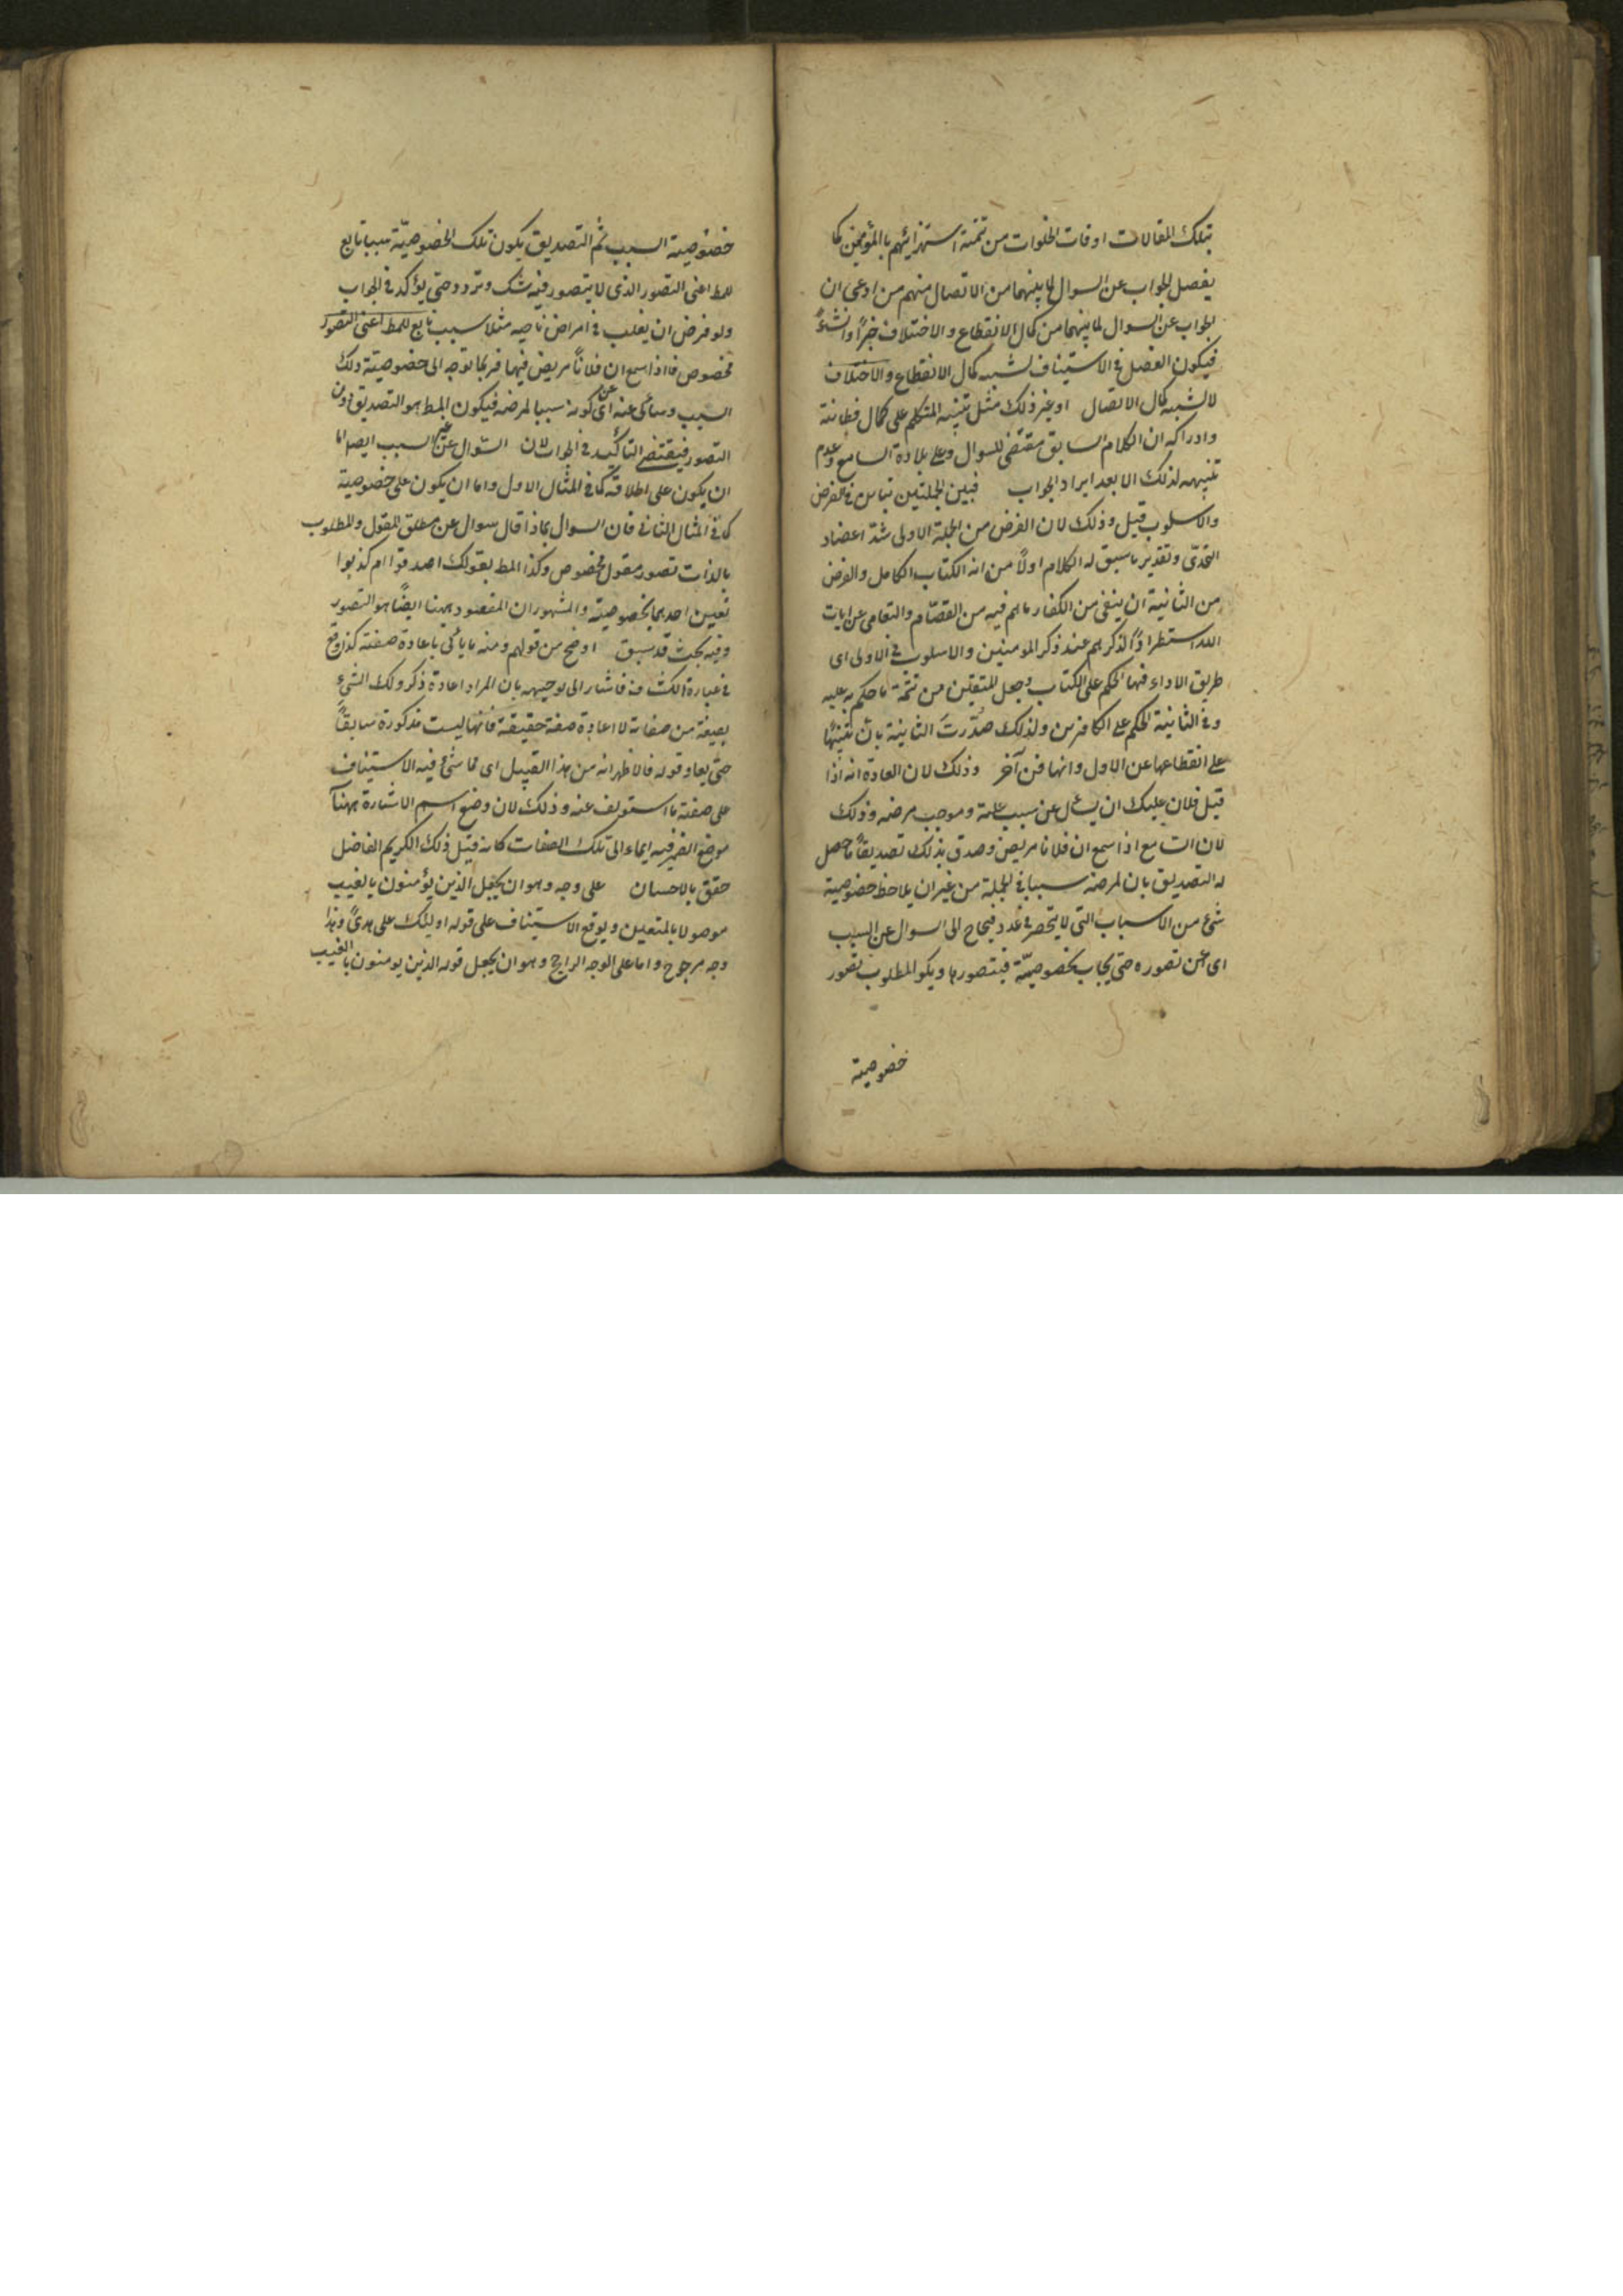 بتلك المقالات اوقات الخلوات من تتمة استهزائهم بالمؤمنين كما
يفصل الجواب عن السوال لما بينهما من الاتصال منهم من ادعى ان
الجواب عن السوال لما بينهما من كمال الانقطاع والاختلاف خبرًا وانشاءً
فيكون الفصل في الاستيناف لشبه كمال الانقطاع والاختلاف
لا لشبه كمال الاتصال او غير ذلك مثل تنبيه المتكلم على كمال فطانته
وادراكه ان الكلام السابق مقتضى للسوال وعلى بلادة السامع وعدم
تنبهه لذلك الا بعد ايراد الجواب فبين الجملتين تباين في الغرض
والاسلوب قيل وذلك لان الغرض من الجملة الاولى شدّ اعضاد
التحدّى وتقدير ما سبق له الكلام اولًا من انه الكتاب الكامل والغرض
من الثانية ان ينعى من الكفار ما هم فيه من التصامّ والتعامى عن ايات
الله استطرادًا لذكرهم عند ذكر المومنين والاسلوب في الاولى اى
طريق الاداء فيها الحكم على الكتاب وجعل المتقين من تتمة ما حكم به عليه
وفى الثانية الحكم على الكافرين ولذلك صُدّرت الثانية بانّ تنبيهًا
على انقطاعها عن الاول وانها فن آخر وذلك لان العادة انه اذا
قيل فلان عليك ان يسئل عن سبب علته وموجب مرضه وذلك
لان السامع اذا سمع ان فلانا مريض وصدق بذلك تصديقًا ما حصل
له التصديق بان لمرضه سببا في الجملة من غير ان يلاحظ خصوصية
شئ من الاسباب التى لا ينحصر في عدد فيحتاج الى السوال عن السبب
اى عن تصوره حتى يجاب بخصوصيّة فيتصورها ويكو المطلوب تصور
خصوصية
خصوصية السبب ثم التصديق بكون تلك الخصوصيّة سببا تابع
للمط اعنى التصور الذى لا يتصور فيه شك وتردد حتى يؤكد في الجواب
ولو فرض ان يغلب في امراض ناحيه مثلا سبب تابع للمط اعنى التصور
مخصوص فاذا سمع ان فلانًا مريض فيها فربما توجه الى خصوصيّة ذلك
السبب وسائى عنه اى عن كونه سببا لمرضه فيكون المط هو التصديق دون
التصور فيقتضى التأكيد في الجواب لان السّوال عن غير السبب ايضا اما
ان يكون على اطلاقه كما في المثال الاول واما ان يكون على خصوصية
كما في المثال الثانى فان السوال بماذا قال سوال عن مطلق المقول والمطلوب
بالذات تصور مقول مخصوص وكذا المط بقولك اصدقوا ام كذبوا
تعيين احدهما بخصوصيته والمشهور ان المقصود ههنا ايضًا هو التصور
وفيه بحث قد سبق اوضح من قولهم ومنه ما يأتى باعادة صفته كذا وقع
في عبارة الكشاف فاشار الى توجيهه بان المراد اعادة ذكر ذلك الشىء
بصفة من صفاته لا اعادة صفة حقيقة فانها ليست مذكورة سابقًا
حتى يعاد قوله فالاظهر انه من هذا القبيل اى مما بنى فيه الاستيناف
على صفة ما استونف عنه وذلك لان وضع اسم الاشارة ههنا
موضع الضمير فيه ايماء الى تلك الصفات كانه قيل ذلك الكريم الفاضل
حقيق بالاحسان على وجه وهو ان يجعل الذين يؤمنون بالغيب
موصولا بالمتقين ويوقع الاستيناف على قوله اولئك على هدىً وهذا
وجه مرجوح واما على الوجه الراجح وهو ان يجعل قوله الذين يومنون بالغيب